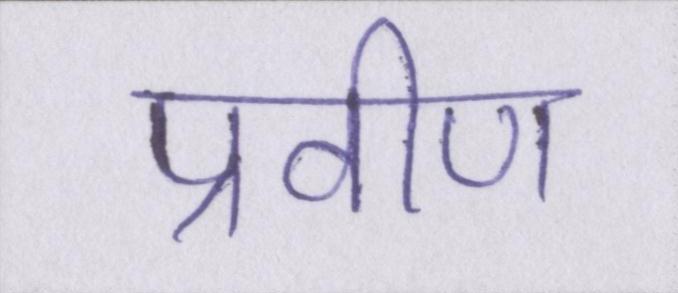 प्रवीण